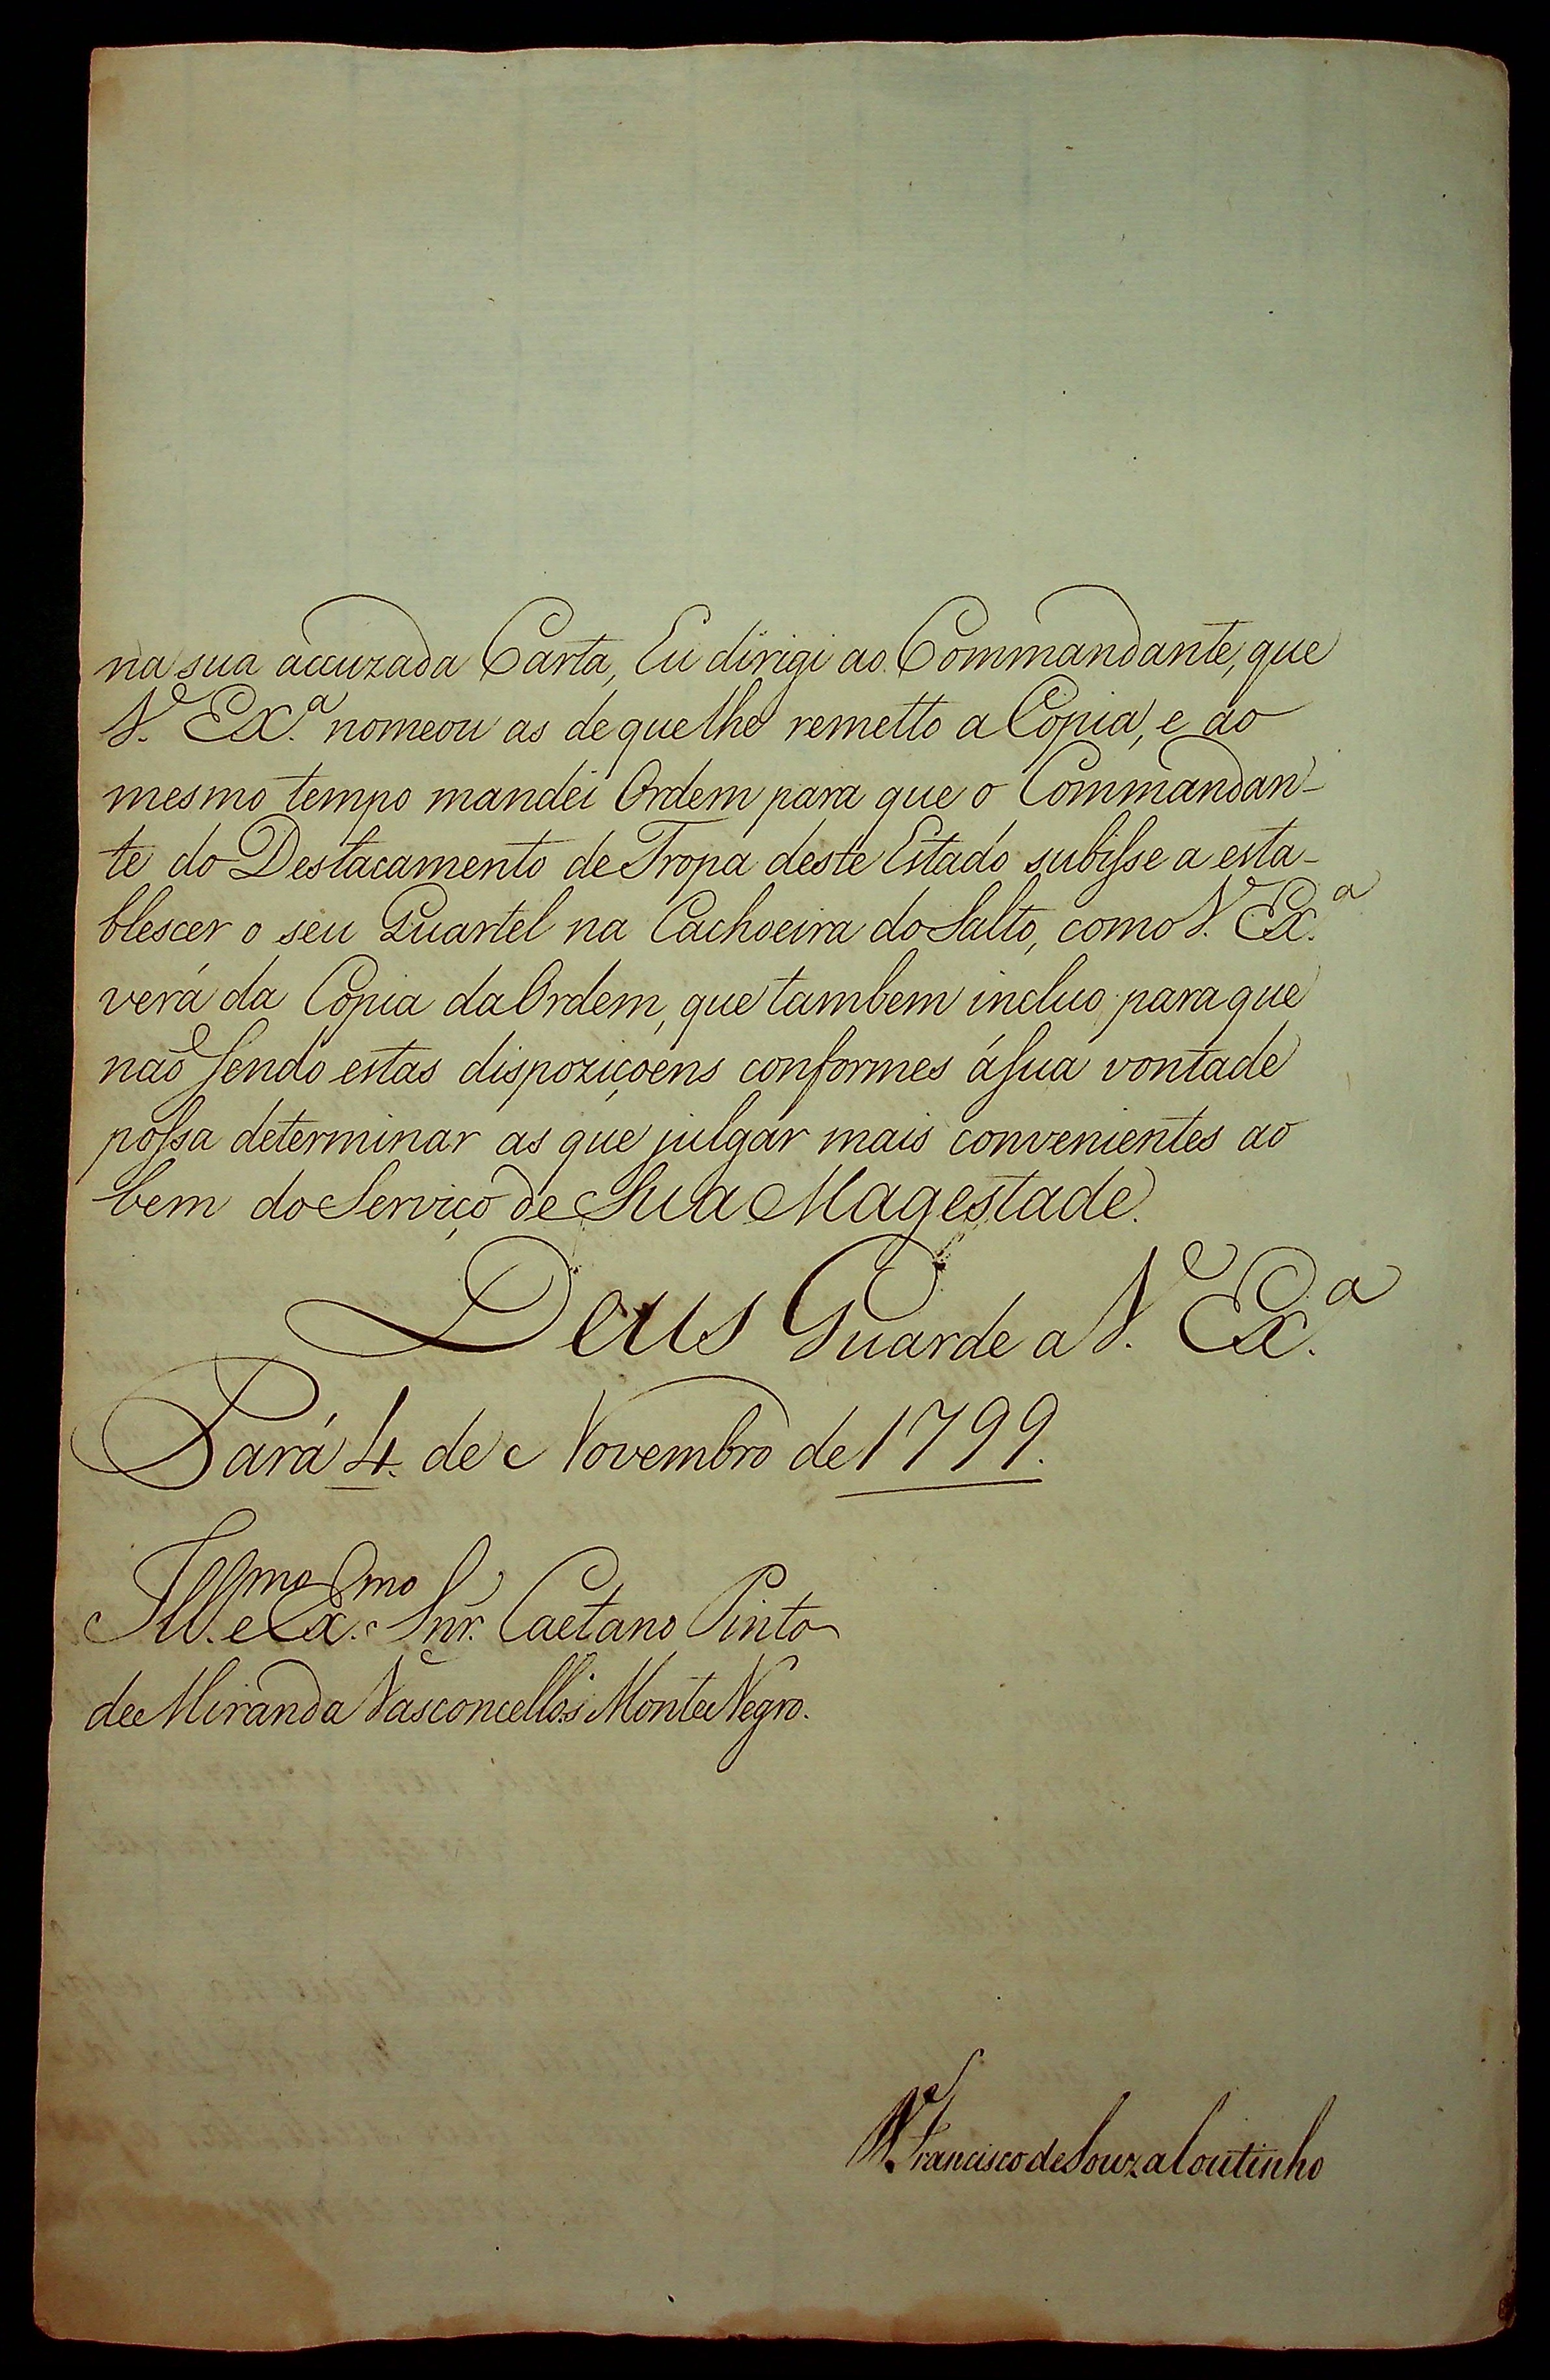 na sua accuzada Carta, Eu dirigi ao Commandante, que
V. Ex.ª nomeou as de que lhe remetto a Copia, e ao
mesmo tempo mandei Ordem para que o Commandan-
te do Destacamento de Tropa deste Estado subisse a esta-
blescer o seu Quartel na Cachoeira do Salto, como V. Ex.ª
verá da Copia da Ordem, que tambem incluo, para que
não sendo estas dispoziçoens conformes á sua vontade
possa determinar as que julgar mais convenientes ao
bem do Serviço de Sua Magestade.
Deus Guarde a V. Ex.ª
Pará 4. de Novembro de 1799.
Ill.mo e Ex.mo Snr. Caetano Pinto
de Miranda Vasconcellos Monte Negro.
Francisco de Souza Coutinho